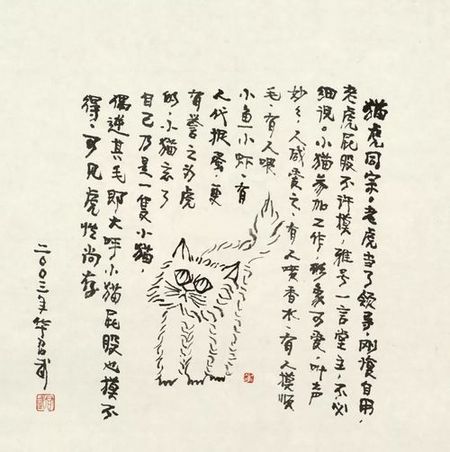 猫虎同宗。老虎当了领导,刚愎自用,
老虎屁股不许摸,雅号一言堂主,不必
细说。小猫参加工作,形象可爱,叫声
妙々,人咸爱之,有人喷香水,有人摸顺
毛,有人喂
小鱼小虾,有
人代捉蚤,更
有誉之为虎
的,小猫忘了
自己乃是一隻小猫,
偶逆其毛即大呼小猫屁股也摸不
得。可见虎性尚存
二〇〇三年华君武